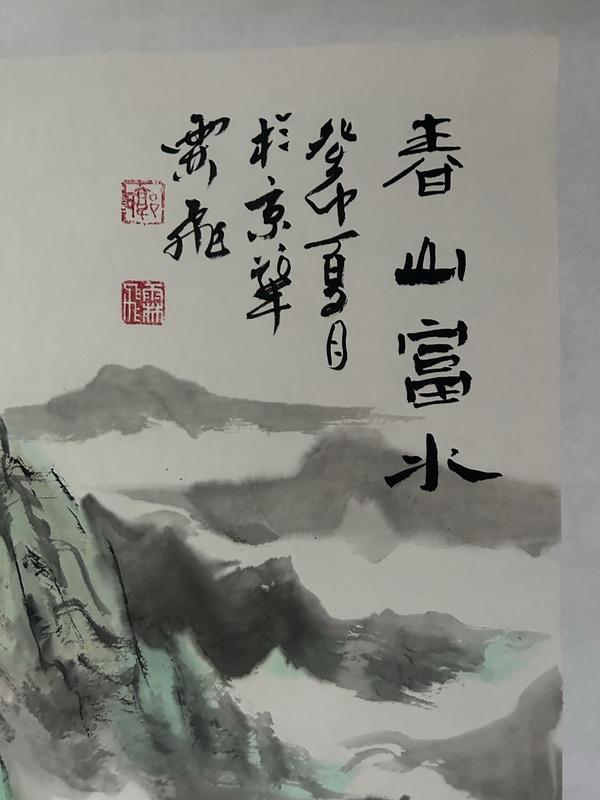 春山富水
癸卯夏月
於京華
霖飛
霖飛